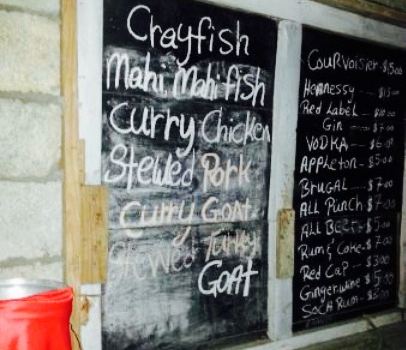 Crayfish
Mahi Mahi fish
Curry Chicken
Stewed Pork
Curry Goat
Stewed Turkey
Goat
Courvoisier - $15.00
Hennessy --- $15.00
Red Label --- $10.00
Gin --- $7.00
VODKA -- $6.00
Appleton - 5.00
BRUGAL --- $7.00
ALL Punch - $7.00
ALL BEER - $5.00
Rum & Coke - $7.00
Red Cap - $3.00
Ginger wine $5.00
SoCA Rum - $5.00